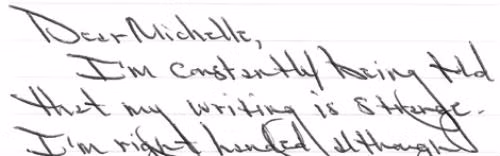 Dear Michelle,
I'm constantly being told
that my writing is strange.
I'm right handed although